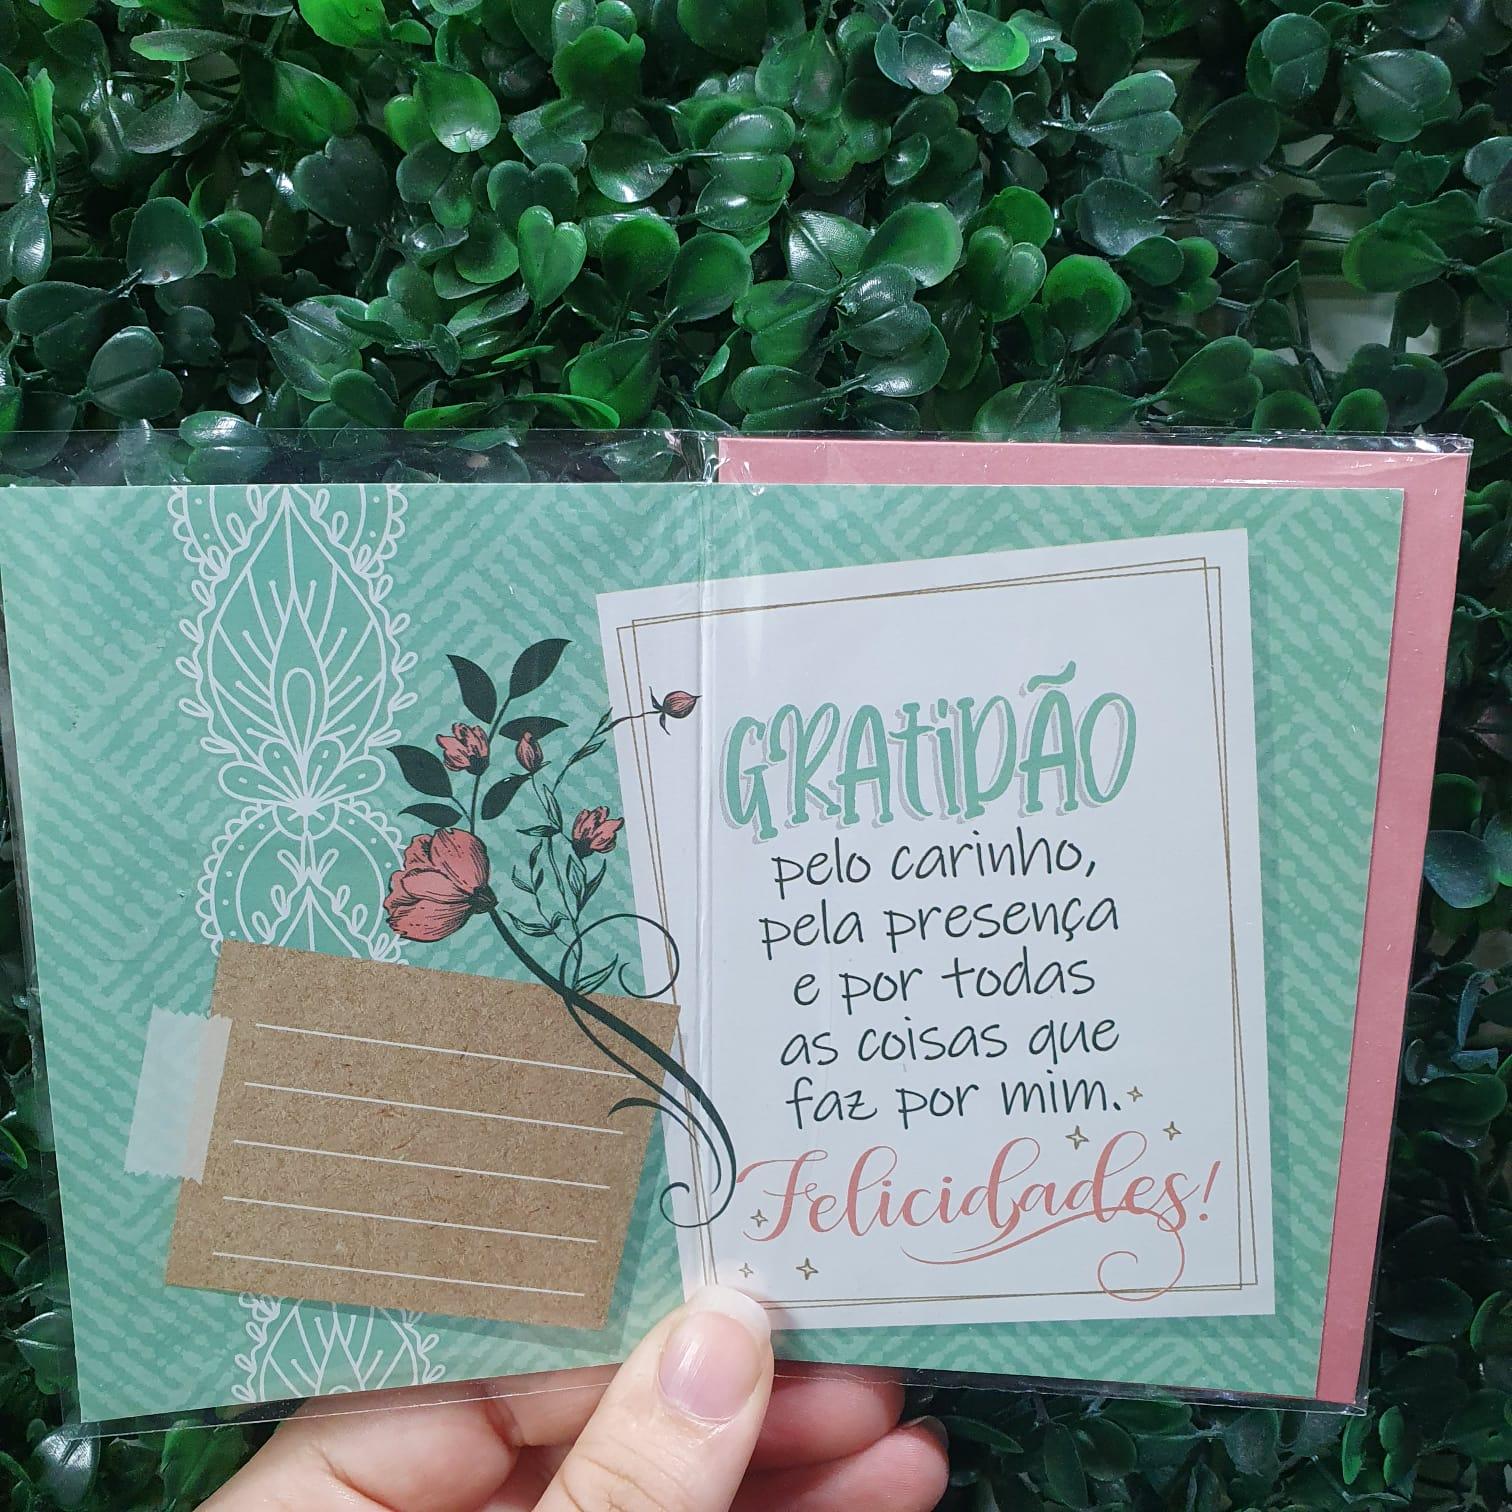 GRATIDÃO
pelo carinho,
pela presença
e por todas
as coisas que
faz por mim.
Felicidades!